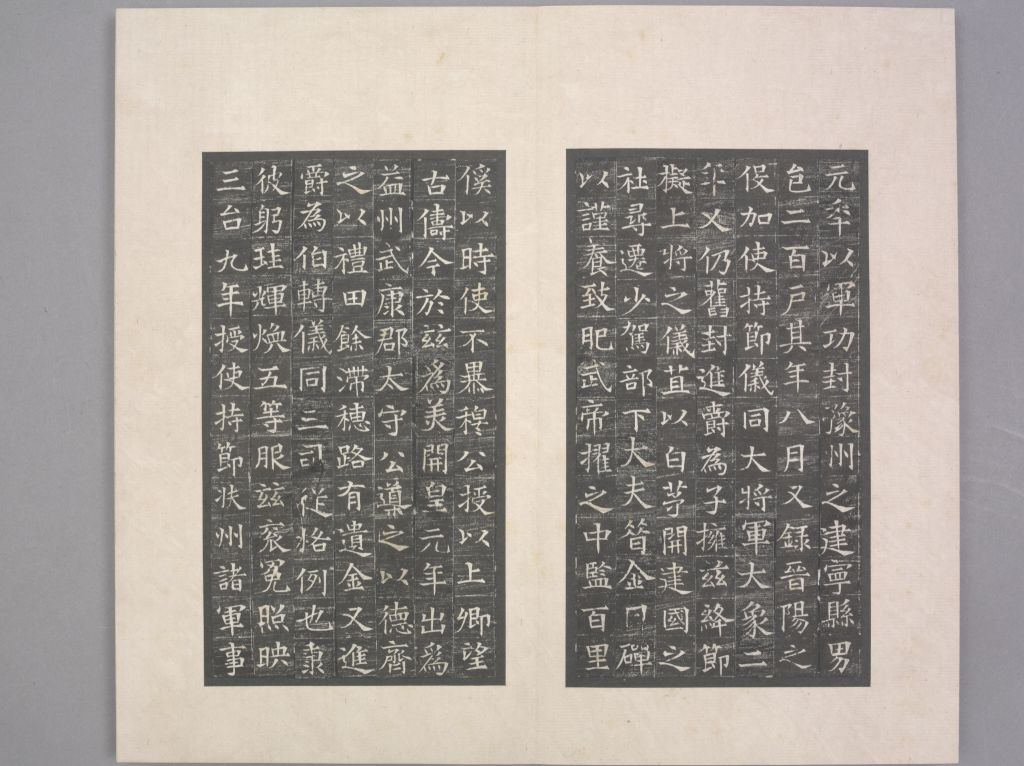 元年以軍功封豫州之建寧縣男
邑二百戶其年八月又錄晉陽之
役加使持節儀同大將軍大象二
年又仍舊封進爵為子擁茲絳節
擬上將之儀苴以白茅開建國之
社尋遷少駕部下大夫昔金日磾
以謹養致肥武帝擢之中監百里
傒以時使不暴穆公授以上卿望
古儔今於茲為美開皇元年出為
益州武康郡太守公導之以德齊
之以禮田餘滯穗路有遺金又進
爵為伯轉儀同三司從格例也
彼躬珪輝煥五等服茲袞冕照映
三台九年授使持節扶州諸軍事